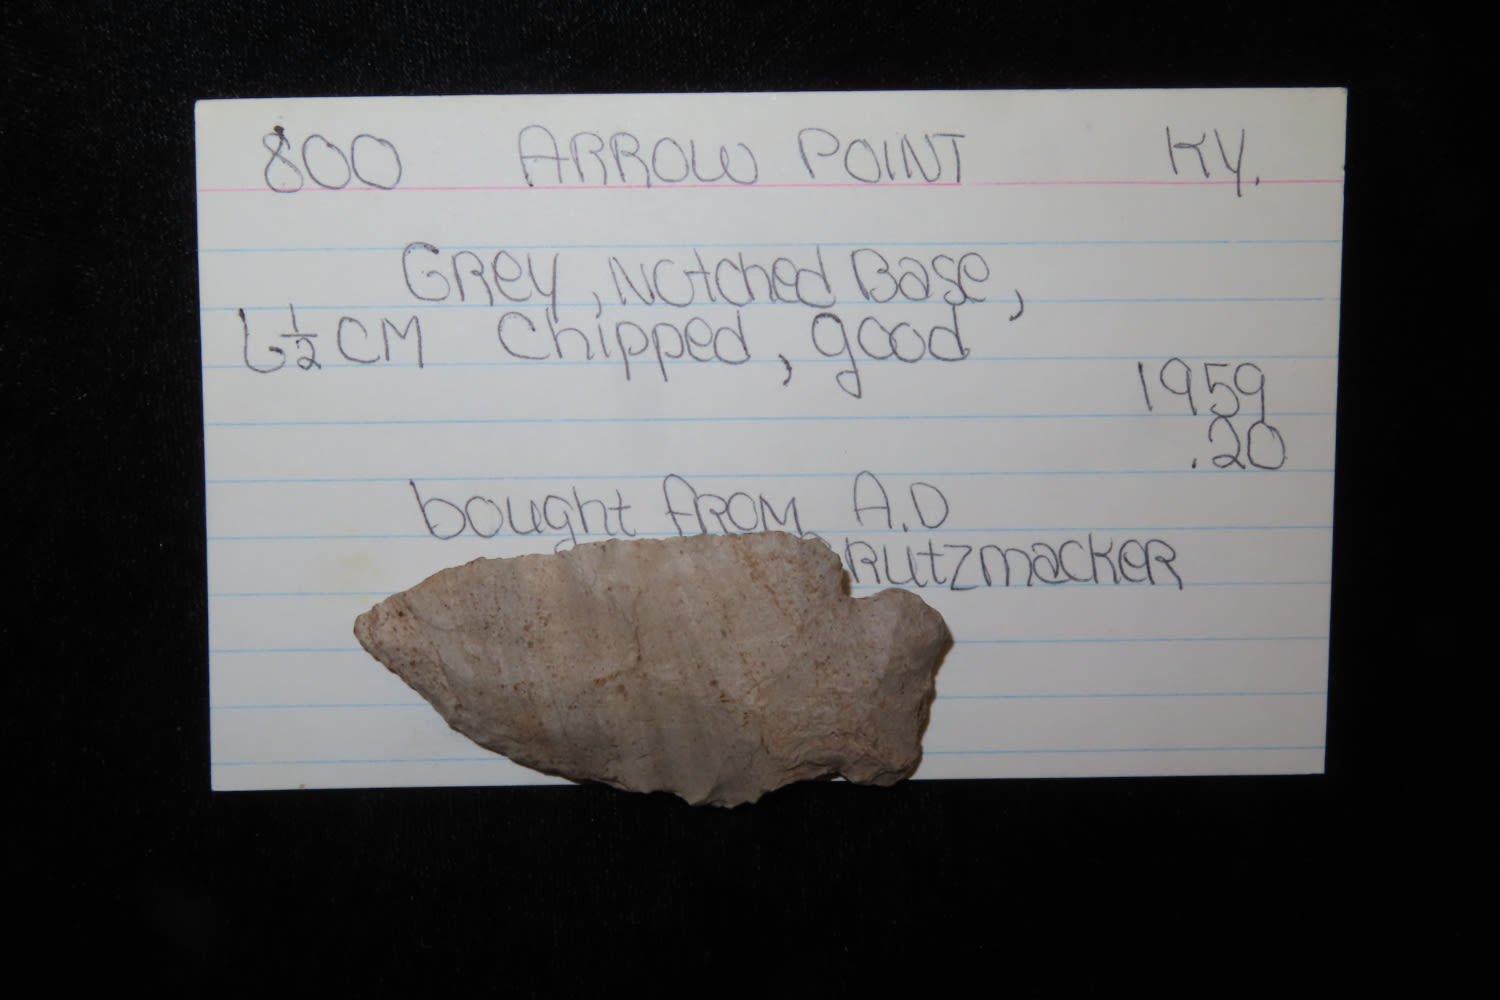 800 ARROW POINT KY.
GREY, NOTCHED BASE,
6 1/2 CM Chipped, good
1959
.20
bought FROM A.D
RUTZMACKER